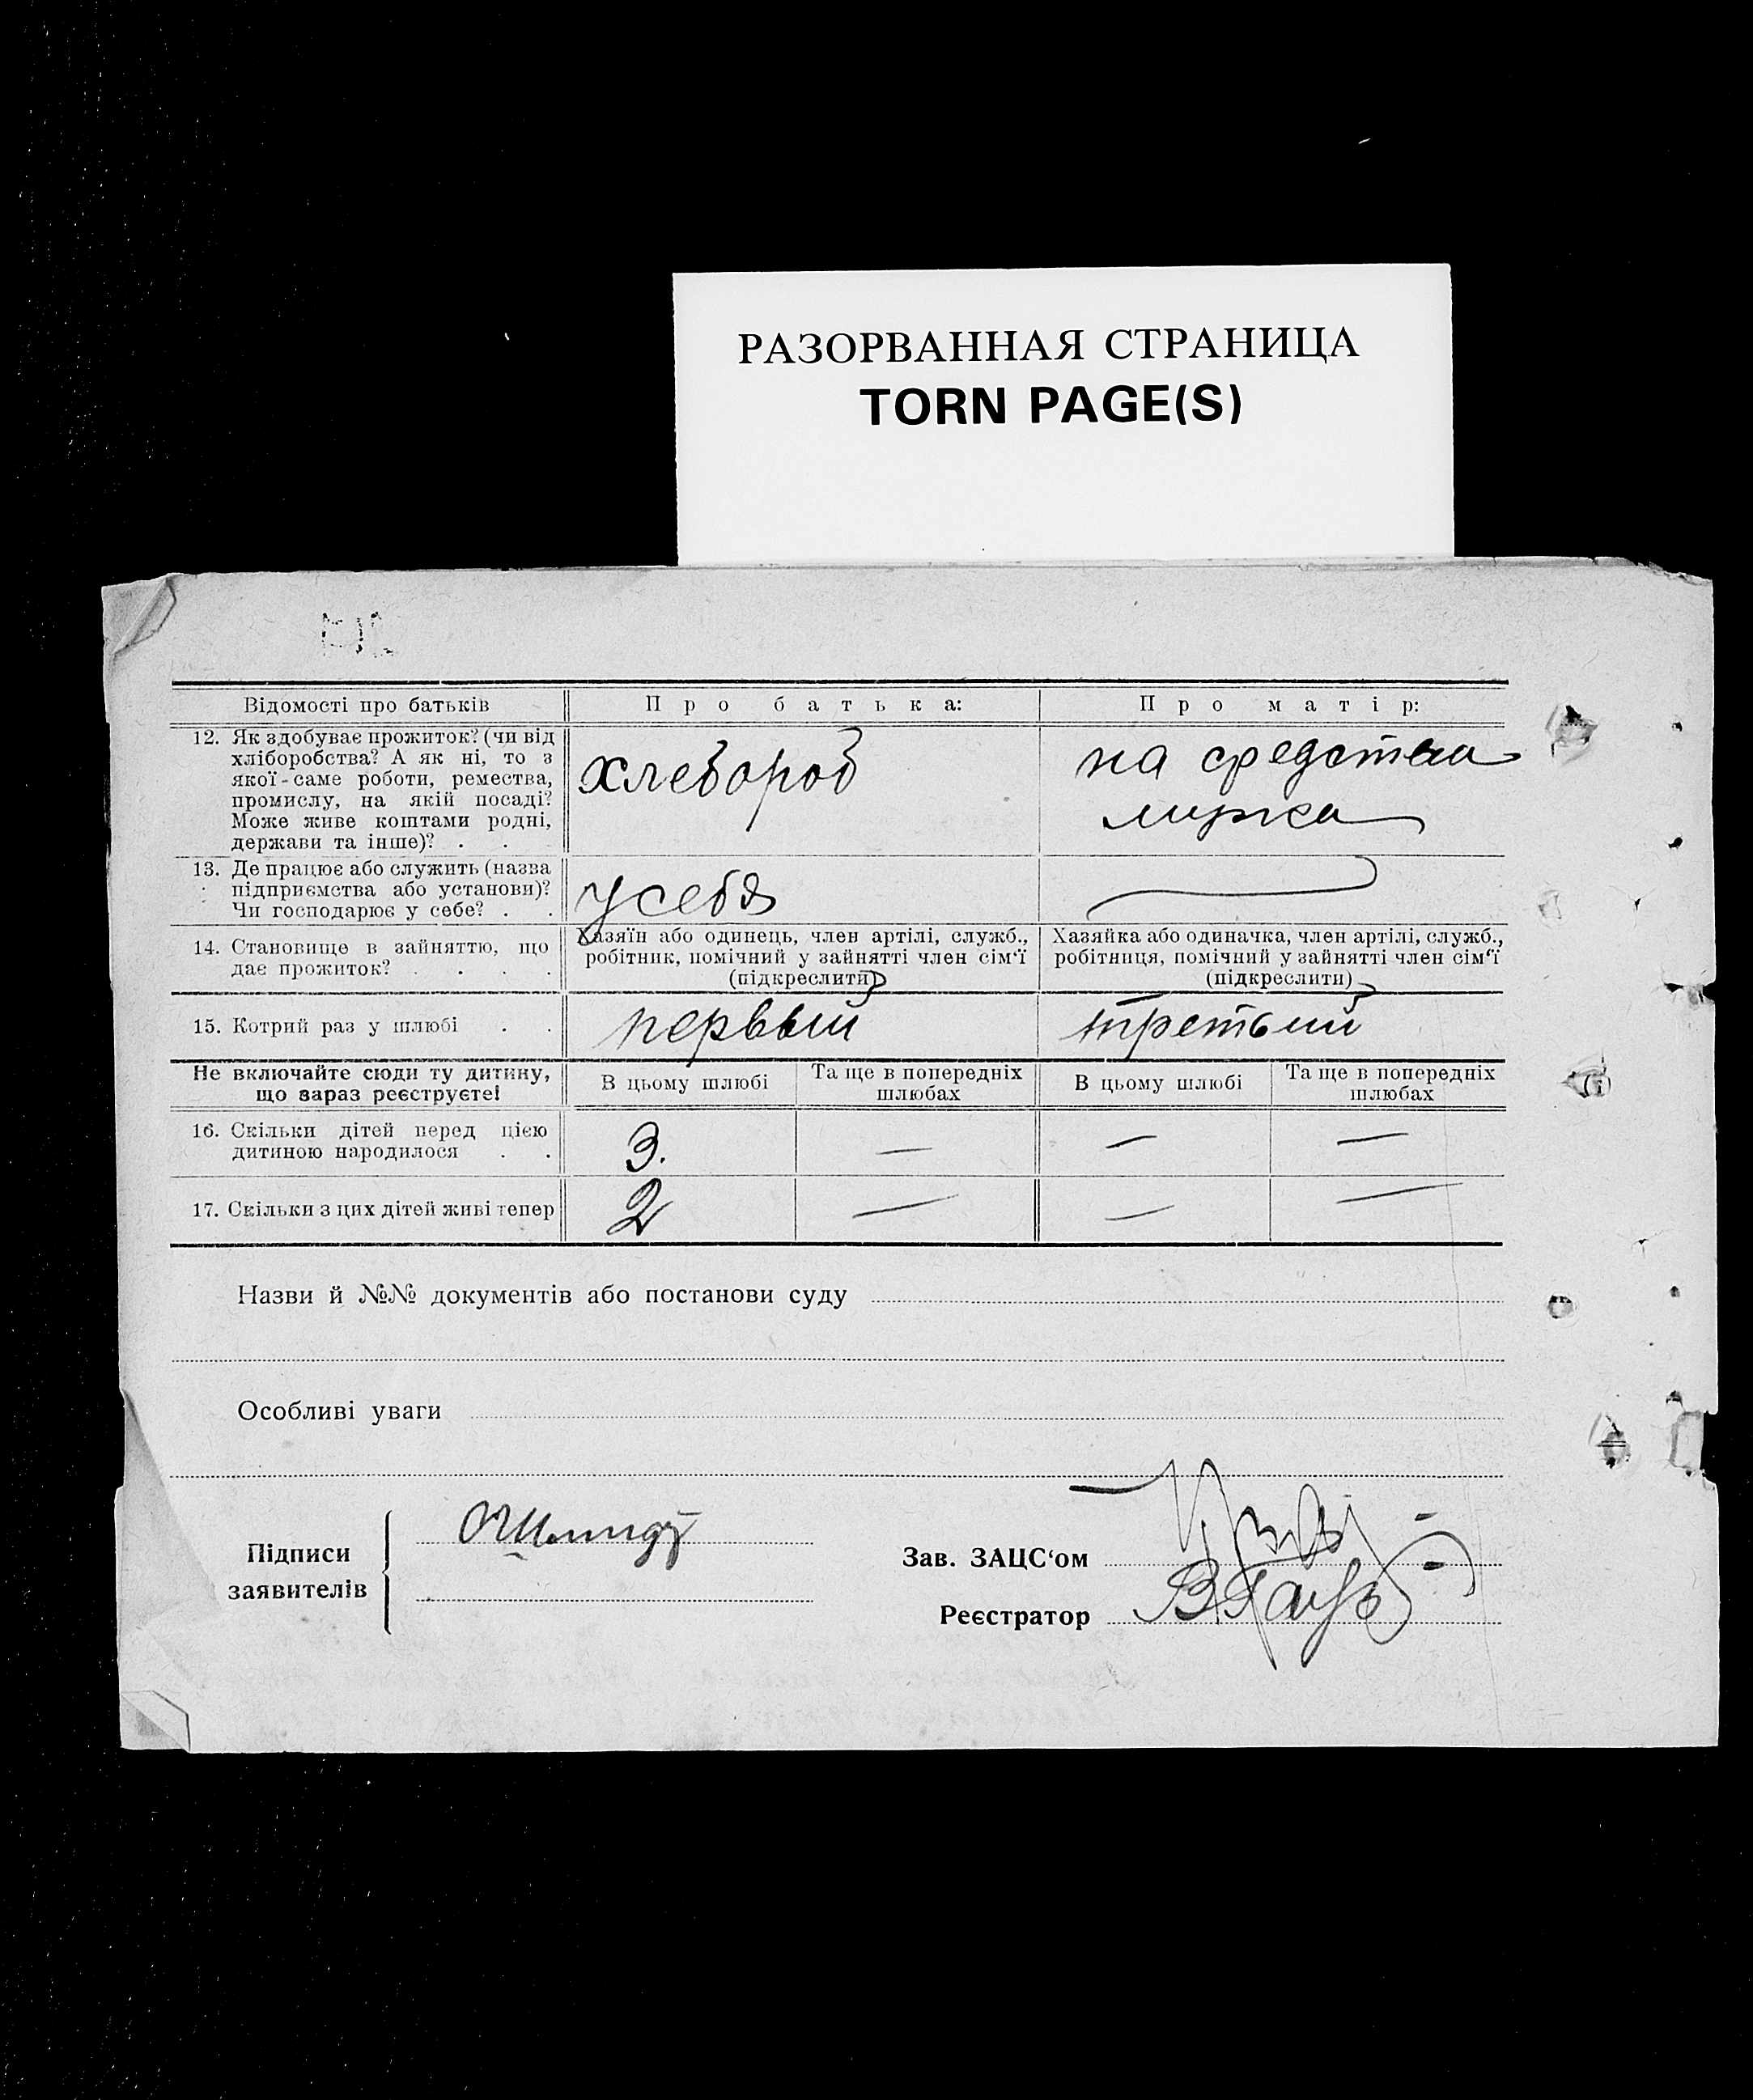 РАЗОРВАННАЯ СТРАНИЦА
TORN PAGE(S)
Відомості про батьків
Про батька:
Про матір:
12. Як здобуває прожиток? (чи від
хліборобства? А як ні, то з
якої-саме роботи, ремества,
промислу, на якій посаді?
Може живе коштами родні,
держави та інше)? . .
хлебороб
на средства
мужа
13. Де працює або служить (назва
підприємства або установи)?
Чи господарює у себе? . .
у себя
14. Становище в зайняттю, що
дає прожиток? . . . .
Хазяїн або одинець, член артілі, служб.,
робітник, помічний у зайнятті член сім‘ї
(підкреслити)
Хазяйка або одиначка, член артілі, служб.,
робітниця, помічний у зайнятті член сім‘ї
(підкреслити)
15. Котрий раз у шлюбі . .
первый
третьий
Не включайте сюди ту дитину,
що зараз реєструєте!
В цьому шлюбі
Та ще в попередніх
шлюбах
В цьому шлюбі
Та ще в попередніх
шлюбах
16. Скільки дітей перед цією
дитиною народилося . .
3. — — —
17. Скільки з цих дітей живі тепер
2 — — —
Назви й №№ документів або постанови суду
Особливі уваги
Підписи
заявителів
Зав. ЗАЦС‘ом
Реєстратор